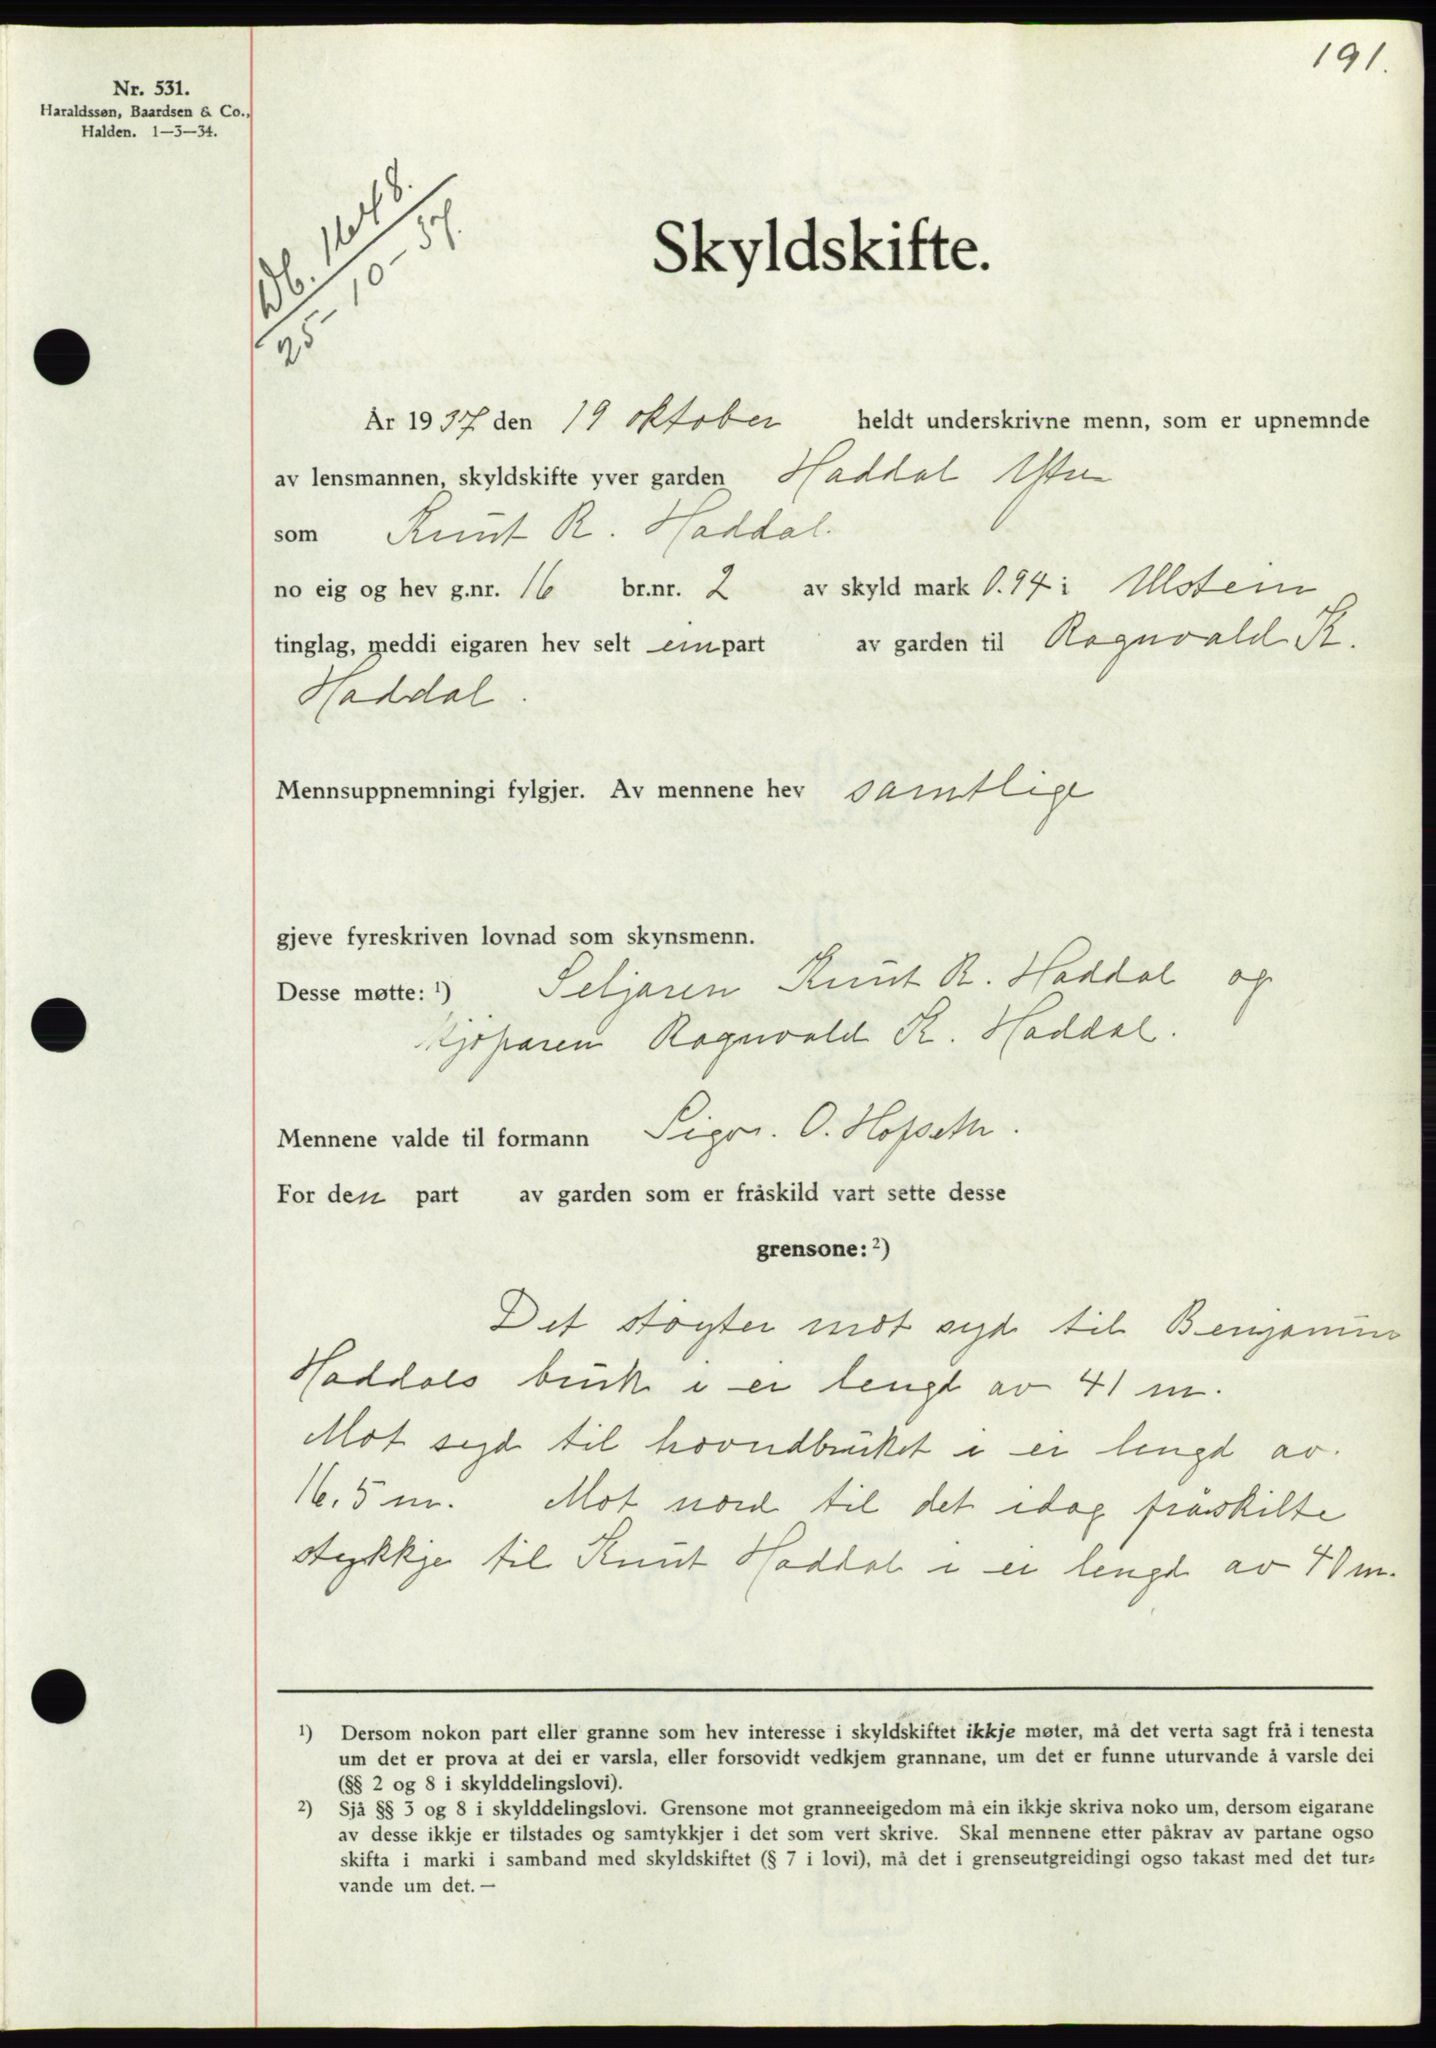 191.
Nr. 531.
Haraldssøn, Baardsen & Co.,
Halden. 1—3—34.
Db. 1648.
25-10-37.
Skyldskifte.
År 1937 den 19 oktober heldt underskrivne menn, som er upnemnde
av lensmannen, skyldskifte yver garden Haddal Ytre
som Knut R. Haddal.
no eig og hev g.nr. 16 br.nr. 2 av skyld mark 0.94 i Ulstein
tinglag, meddi eigaren hev selt ein part av garden til Ragnvald K.
Haddal.
Mennsuppnemningi fylgjer. Av mennene hev samtlige
gjeve fyreskriven lovnad som skynsmenn.
Desse møtte: ¹) Seljaren Knut R. Haddal og
kjøparen Ragnvald K. Haddal.
Mennene valde til formann Sigv. O. Hofseth.
For den part av garden som er fråskild vart sette desse
grensone: ²)
Det støyter mot syd til Benjamin
Haddals bruk i ei lengd av 41 m.
Mot syd til hovudbruket i ei lengd av
16.5 m. Mot nord til det idag fråskilte
stykkje til Knut Haddal i ei lengd av 40 m.
¹) Dersom nokon part eller granne som hev interesse i skyldskiftet ikkje møter, må det verta sagt frå i tenesta
um det er prova at dei er varsla, eller forsovidt vedkjem grannane, um det er funne uturvande å varsle dei
(§§ 2 og 8 i skylddelingslovi).
²) Sjå §§ 3 og 8 i skylddelingslovi. Grensone mot granneeigedom må ein ikkje skriva noko um, dersom eigarane
av desse ikkje er tilstades og samtykkjer i det som vert skrive. Skal mennene etter påkrav av partane ogso
skifta i marki i samband med skyldskiftet (§ 7 i lovi), må det i grenseutgreidingi ogso takast med det tur-
vande um det. —